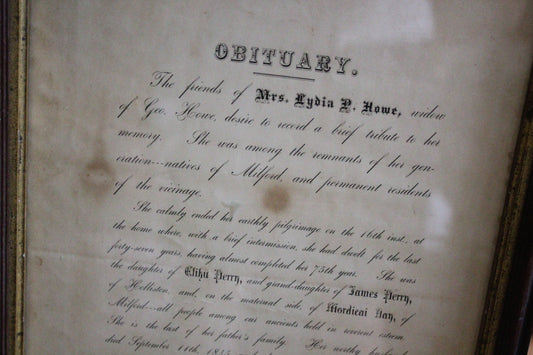 OBITUARY.
The friends of Mrs. Lydia P. Howe, widow
of Geo. Howe, desire to record a brief tribute to her
memory. She was among the remnants of her gen-
eration---natives of Milford, and permanent residents
of the vicinage.
She calmly ended her earthly pilgrimage on the 16th inst., at
the home where, with a brief intermission, she had dwelt for the last
forty-seven years, having almost completed her 75th year. She was
the daughter of Elihu Perry, and grand daughter of James Perry,
of Holliston, and, on the maternal side, of Mordicai Day, of
Milford---all people among our ancients held in reverent esteem.
She is the last of her father's family. Her worthy husband
died September 11th,